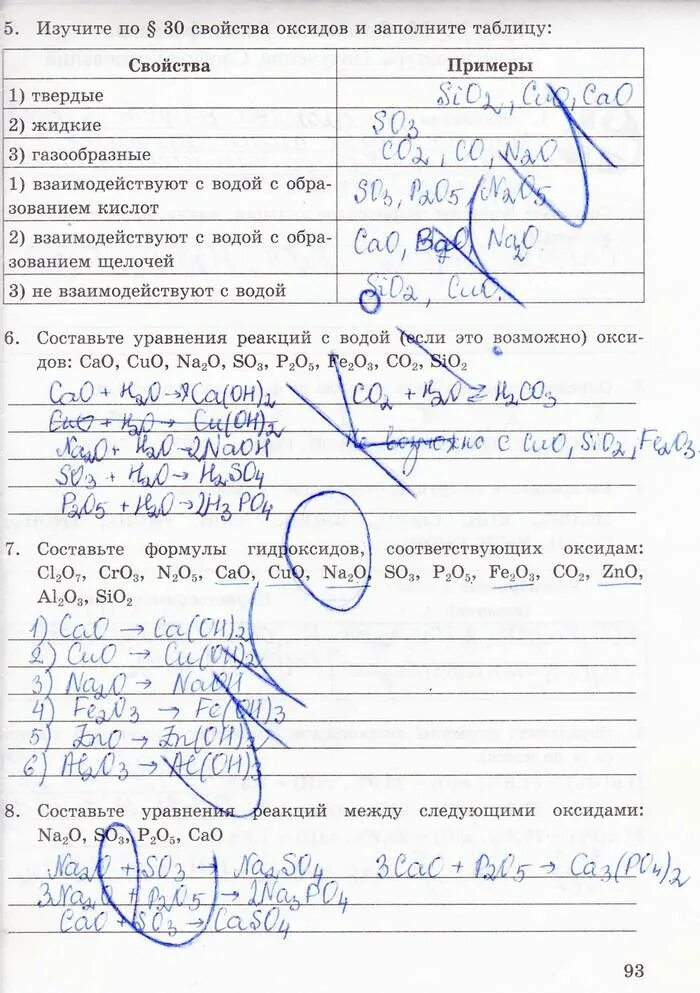 5. Изучите по § 30 свойства оксидов и заполните таблицу:
Свойства Примеры
1) твердые SiO2, CuO, CaO
2) жидкие SO3
3) газообразные CO2, CO, N2O
1) взаимодействуют с водой с обра-
зованием кислот SO3, P2O5, N2O5
2) взаимодействуют с водой с обра-
зованием щелочей CaO, BaO, Na2O
3) не взаимодействуют с водой SiO2, CuO.
6. Составьте уравнения реакций с водой (если это возможно) окси-
дов: CaO, CuO, Na2O, SO3, P2O5, Fe2O3, CO2, SiO2
CaO + H2O → Ca(OH)2 CO2 + H2O ⇄ H2CO3
CuO + H2O → Cu(OH)2
Na2O + H2O → 2NaOH Не возможно с CuO, SiO2, Fe2O3
SO3 + H2O → H2SO4
P2O5 + H2O → 2H3PO4
7. Составьте формулы гидроксидов, соответствующих оксидам:
Cl2O7, CrO3, N2O5, CaO, CuO, Na2O, SO3, P2O5, Fe2O3, CO2, ZnO,
Al2O3, SiO2
1) CaO → Ca(OH)2
2) CuO → Cu(OH)2
3) Na2O → NaOH
4) Fe2O3 → Fe(OH)3
5) ZnO → Zn(OH)2
6) Al2O3 → Al(OH)3
8. Составьте уравнения реакций между следующими оксидами:
Na2O, SO3, P2O5, CaO
Na2O + SO3 → Na2SO4 3CaO + P2O5 → Ca3(PO4)2
3Na2O + P2O5 → 2Na3PO4
CaO + SO3 → CaSO4
93